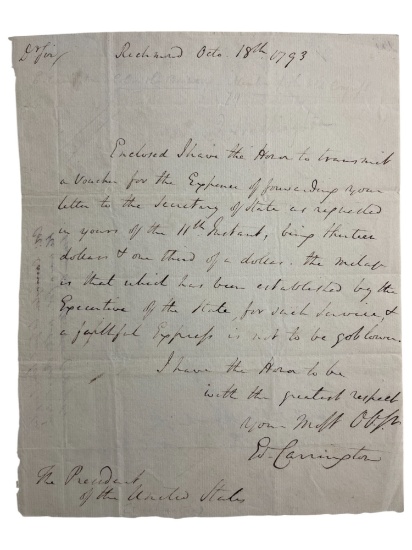 Dr Sir, Richmond Octo. 18th 1793
Enclosed I have the Honor to transmit
a Voucher for the Expense of forwarding your
letter to the Secretary of State as requested
in yours of the 11th Instant, being thirteen
dollars & one third of a dollar. the
is that which has been established by the
Executive of the State for such Service, &
a faithful Express is not to be got lower.
I have the Honor to be
with the greatest respect
your Most Ob. Sr.
Ed. Carrington
The President
of the United States